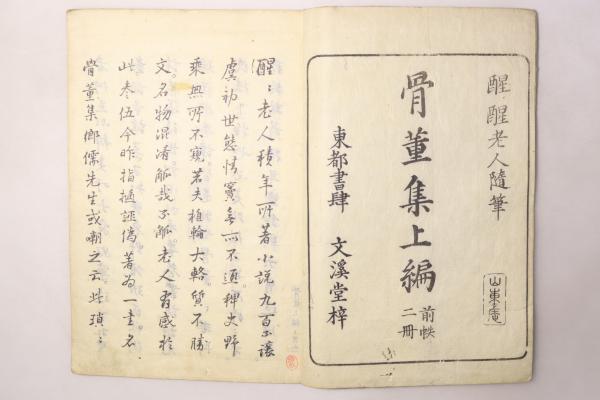 醒醒老人隨筆
骨董集上編
前帙
二冊
山東庵
東都書肆 文溪堂梓
醒〻老人積年所著小說九百不讓
虞初世態情竇無所不通稗史野
乘無所不窺若夫椎輪大輅質不勝
文名物混淆觚哉不觚老人有感於
此叄伍今昨指摘誣僞著為一書名
骨董集鄉儒先生或嘲之云此瑣〻